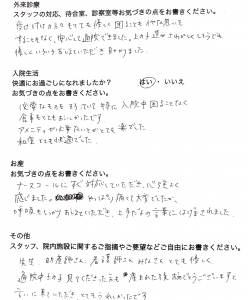 外来診療
スタッフの対応、待合室、診察室等お気づきの点をお書きください。
受け付けの人もとても優しく 困ることも 何も
することもなく、安心して通院できました。上の子
優しくいろいろ していただき 助かりました。
入院生活
快適にお過ごしになれましたか？ はい・いいえ
お気づきの点をお書きください。
必要なものもそろっていて 特に 入院中 困ることなく
食事もとてもおいしかったです
アメニティが 充実 楽でした。
和室 とても快適でした。
お産
お気づきの点をお書きください。
ナースコールに すぐ 対応していただき、心強く
感じました。 やっぱり 痛くて 大変でしたが、
呼吸もしっかり おしえていただき、上手だよの言葉に はげまされました。
その他
スタッフ、院内施設に関するご指摘やご要望などご自由にお書きください。
先生、助産師さん、看護師さん みなさん とても優しく、
通院中 上の子 見てくださった方も 産まれた後 おめでとうございますと
言いに来ていただき、とてもうれしかったです